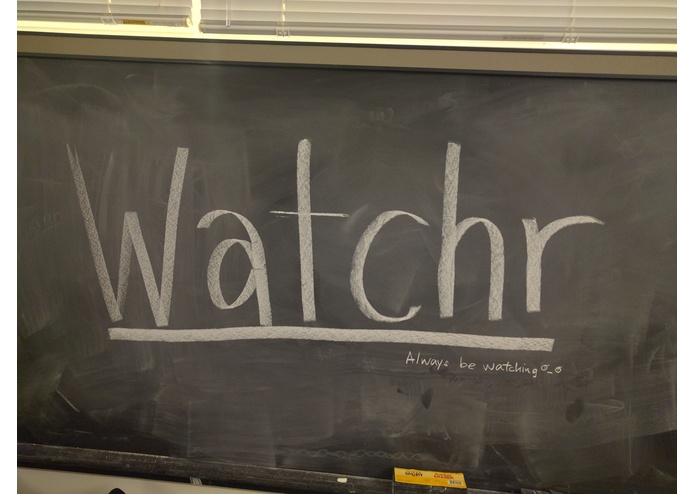 Watchr
Always be watching σ_σ